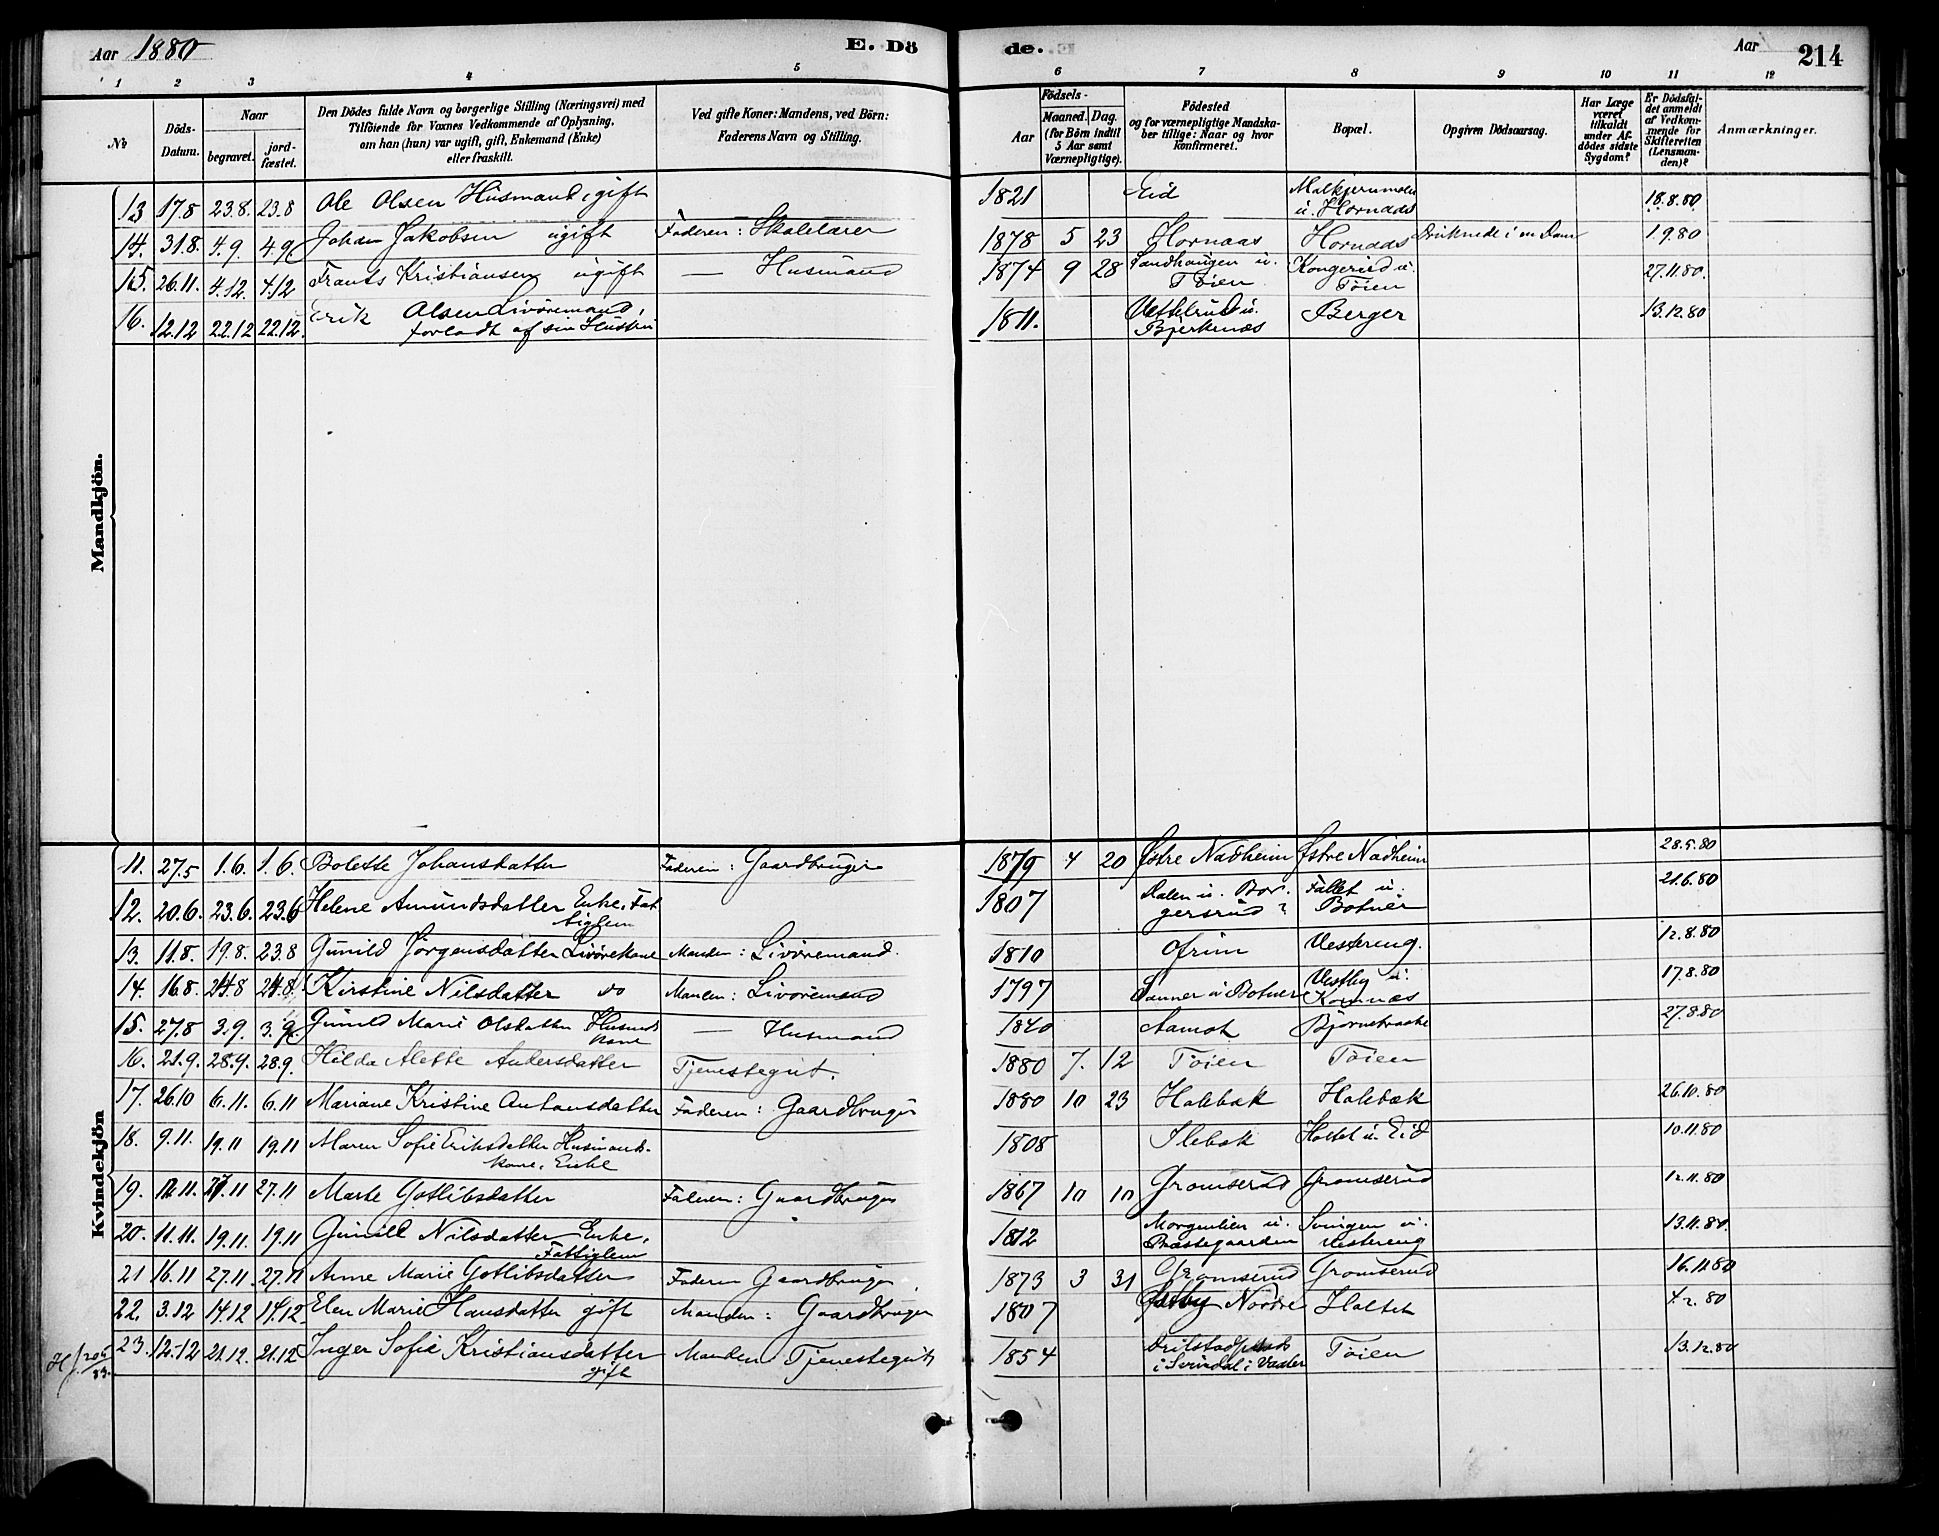 Aar 1880 E. Dö
de. Aar 214
1 2 3 4 5 6 7 8 9 10 11 12
No
Döds-Datum.
Naar
begravet.
jord-fæstet.
Den Dödes fulde Navn og borgerlige Stilling (Næringsvei) med
Tilföiende for Voxnes Vedkommende af Oplysning,
om han (hun) var ugift, gift, Enkemand (Enke)
eller fraskilt.
Ved gifte Koner: Mandens, ved Börn:
Faderens Navn og Stilling.
Födsels-
Aar
Maaned. Dag.
(for Börn indtil
5 Aar samt
Værnepligtige).
Födested
og for værnepligtige Mandska-
ber tillige: Naar og hvor
konfirmeret.
Bopæl.
Opgiven Dödsaarsag.
Har Læge
været
tilkaldt
under Af-
dödes sidste
Sygdom?
Er Dödsfal-
det anmeldt
af Vedkom-
mende for
Skifteretten
(Lensman-
den)?
Anmærkninger.
Mandkjön.
13 17.8 23.8. 23.8 Ole Olsen Husmand, gift 1821 Eid u. Hornaas 18.8.80
14. 31.8. 4.9. 4.9. Johan Jakobsen ugift Faderen: Skolelærer 1878 5 23 Hornaas Hornaas Druknede i en Dam 1.9.80
15. 26.11. 4.12. 4.12 Frants Kristiansen ugift — Husmand 1874 9 28 Sandhaugen u. Töien Kongerud u. Töien 27.11.80.
16. 12.12 22.12 22.12. Erik Olsen Livöremand, forladt af sin Hustru 1811. u. Bjerkenæs Berger 13.12.80
Kvindekjön
11. 27.5 1.6. 1.6. Bolette Johansdatter Faderen: Gaardbruger 1879 4 20 Østre Nadheim Østre Nadheim 28.5.80
12. 20.6. 23.6. 23.6 Helene Amundsdatter Enke, Fattiglem 1807 Dalen u. Borgersrud? Fallet u. Botner 21.6.80
13. 11.8. 19.8. 23.8 Gunild Jörgensdatter Livörekone Manden: Livöremand. 1810 Ofrim Vestreng. 12.8.80
14. 16.8. 24.8 24.8. Kirstine Nilsdatter do Manden: Livöremand 1797 Sanner u Botner Vestby u. Kornnæs 17.8.80
15. 27.8 3.9. 3.9. Gunild Marie Olsdatter Husmands kone — Husmand 1840 Aamot 27.8.80
16. 21.9. 28.9. 28.9. Hilda Alette Andersdatter Tjenestegut. 1880 7. 12 Töien Töien
17. 26.10 6.11. 6.11 Mariane Kristine Antonsdatter Faderen: Gaardbruger 1880 10 23 Holebæk Holebæk 26.10.80
18. 9.11. 19.11 19.11 Maren Sofie Eriksdatter Husmandskone, Enke 1808 Slebæk Holtet u. Eid 10.11.80
19. 12.11. 27.11 27.11 Marte Gotlibsdatter Faderen: Gaardbruger 1867 10 10 Gromserud Gromserud 12.11.80
20. 11.11. 19.11. 19.11 Gunild Nilsdatter Enke, Fattiglem 1812 Morgenlien u. Præstegaarden Svingen u. Vestreng 13.11.80.
21 16.11 27.11. 27.11 Anne Marie Gotlibsdatter Faderen Gaardbruger 1873 3 31 Gromserud Gromserud 16.11.80
22. 3.12 14.12 14.12. Elen Marie Hansdatter gift Manden: Gaardbruger 1807 Østby Nordre Holtet 4.12.80
23. 12.12 21.12. 21.12 Inger Sofie Kristiansdatter gift Manden Tjenestegut 1854 i Svindal i Vaaler Töien 13.12.80